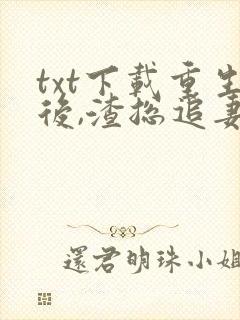 txt下載重生
後,渣總追妻
還君明珠小姐